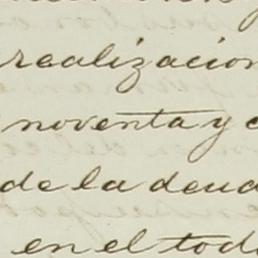 realizacion
noventa y
de la deud
en el tod